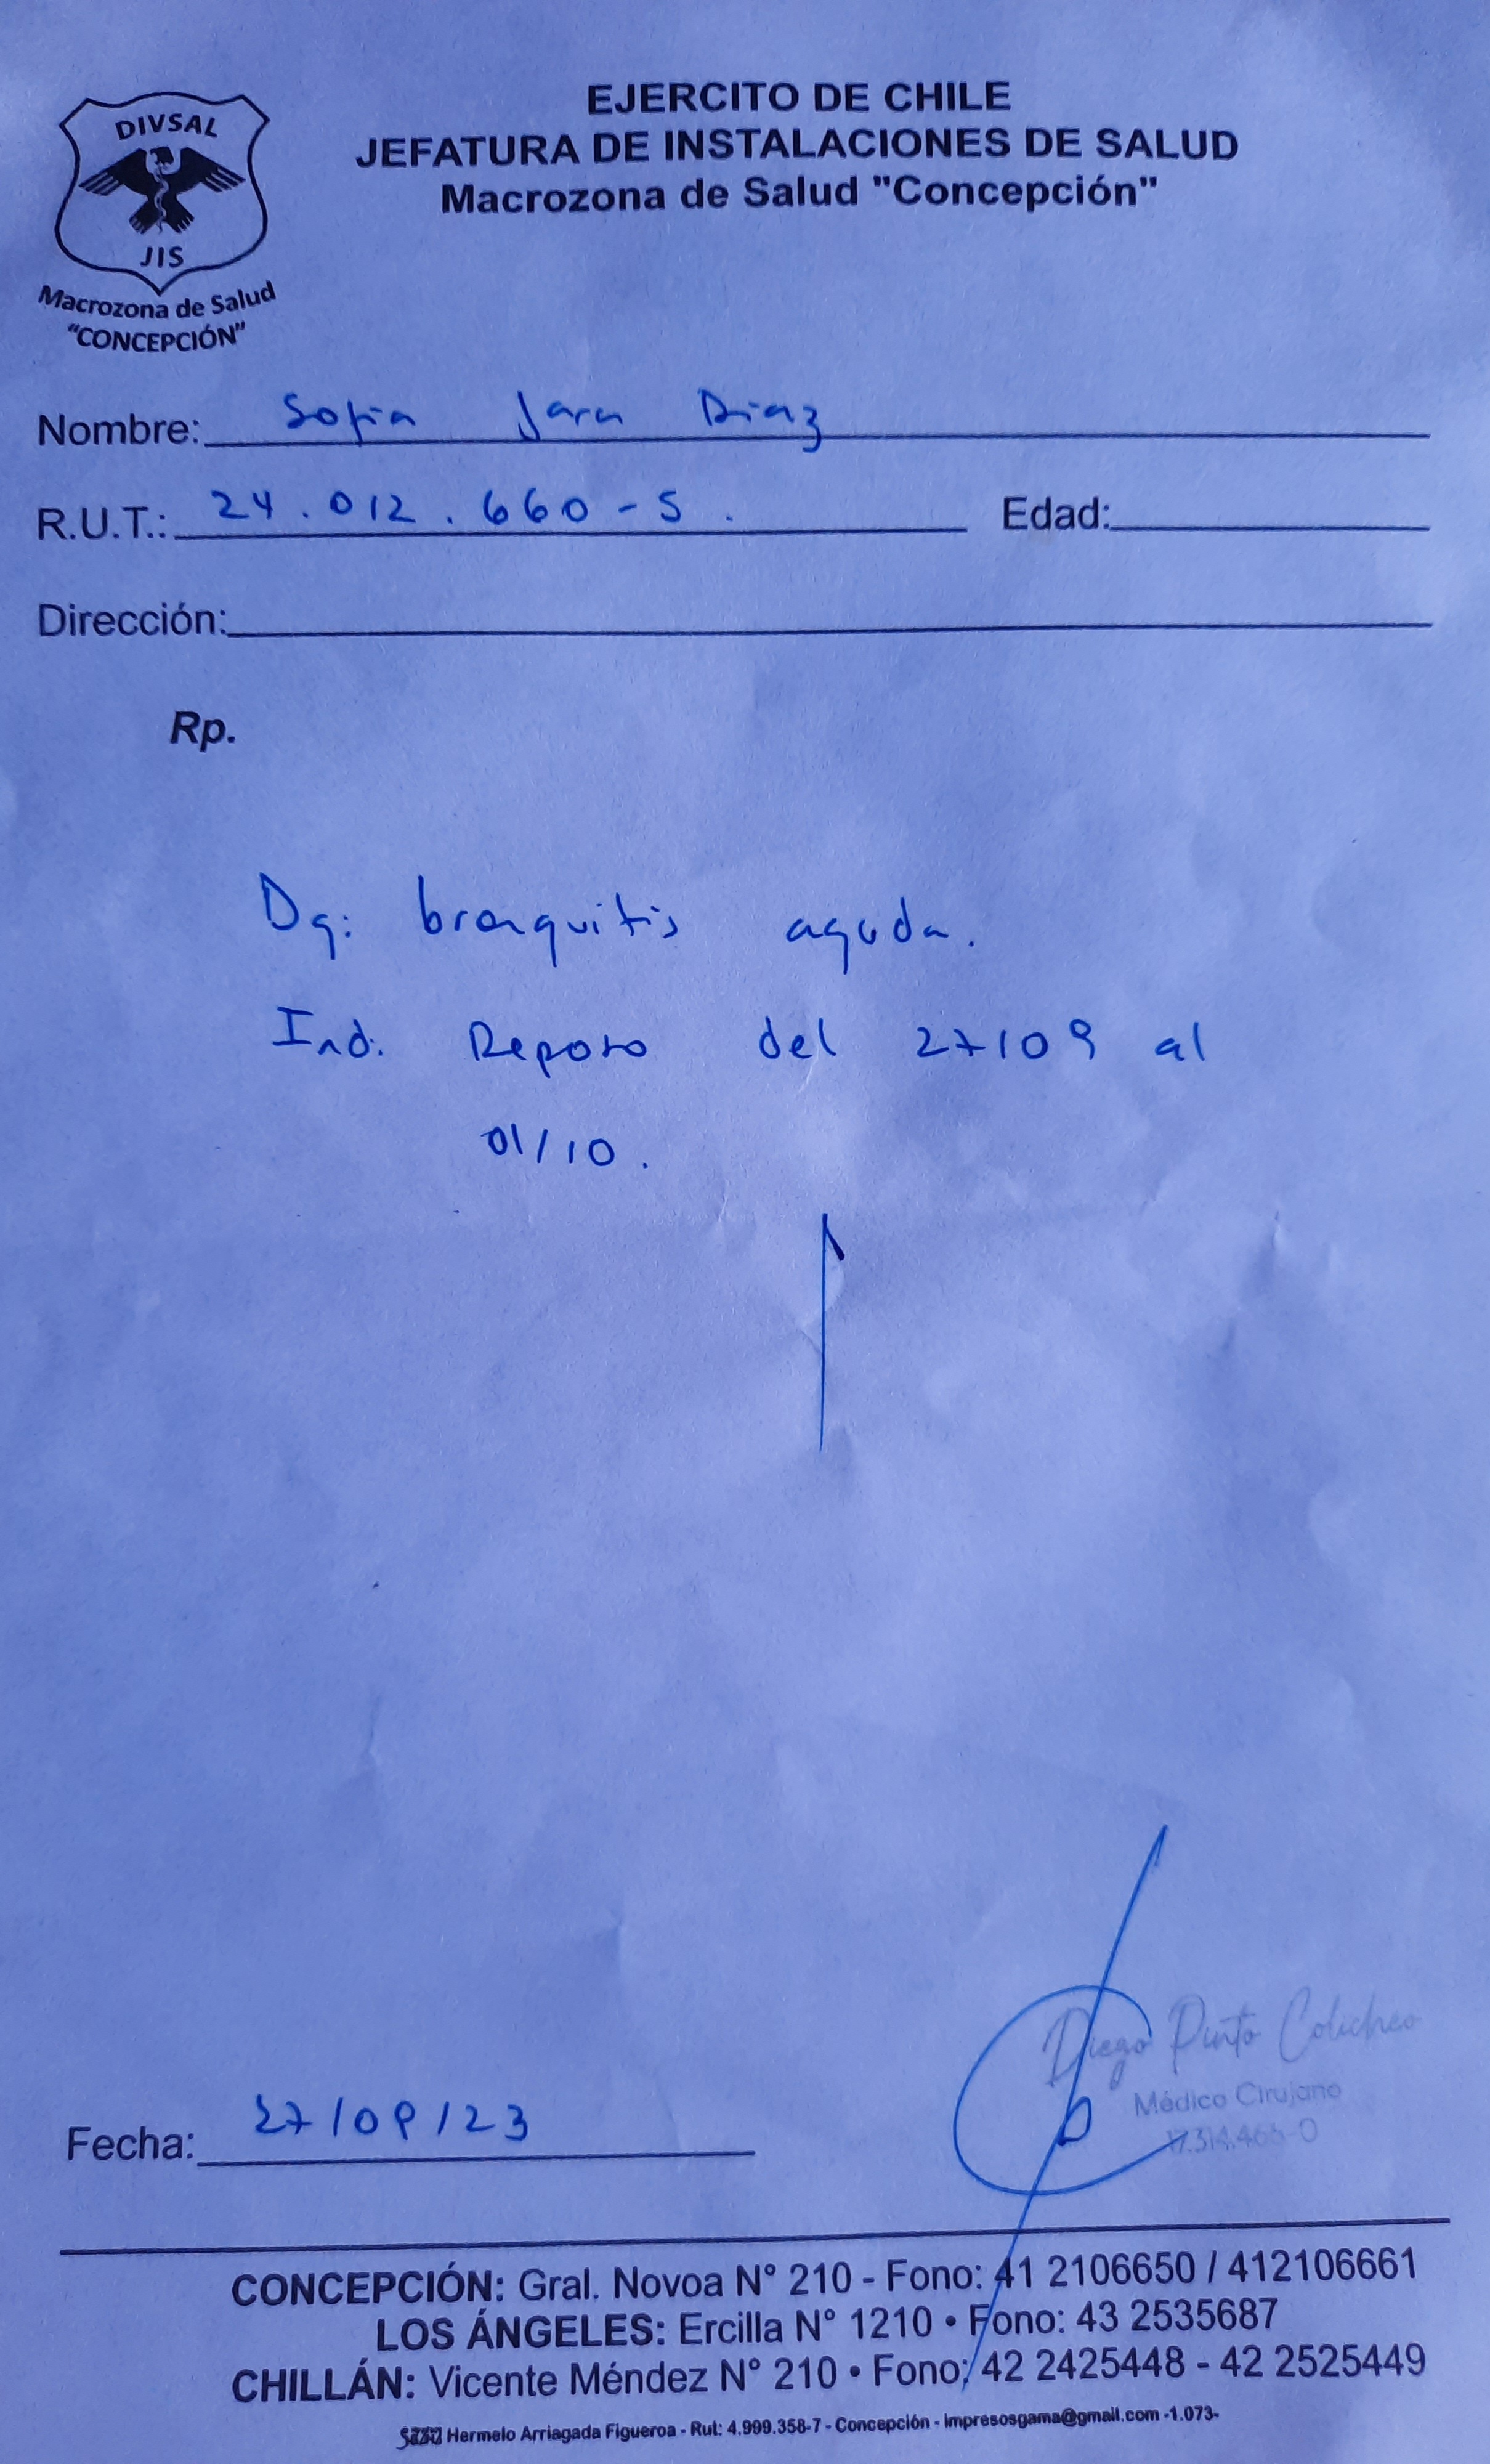 DIVSAL
JIS
Macrozona de Salud
"CONCEPCIÓN"
EJERCITO DE CHILE
JEFATURA DE INSTALACIONES DE SALUD
Macrozona de Salud "Concepción"
Nombre: Sofia Jara Diaz
R.U.T.: 24.012.660-5. Edad:
Dirección:
Rp.
Dg: bronquitis aguda.
Ind. Reposo del 27/09 al
01/10.
Diego Pinto Colicheo
Médico Cirujano
17.314.466-0
Fecha: 27/09/23
CONCEPCIÓN: Gral. Novoa N° 210 - Fono: 41 2106650 / 412106661
LOS ÁNGELES: Ercilla N° 1210 • Fono: 43 2535687
CHILLÁN: Vicente Méndez N° 210 • Fono: 42 2425448 - 42 2525449
Hermelo Arriagada Figueroa - Rut: 4.999.358-7 - Concepción - impresosgama@gmail.com -1.073-